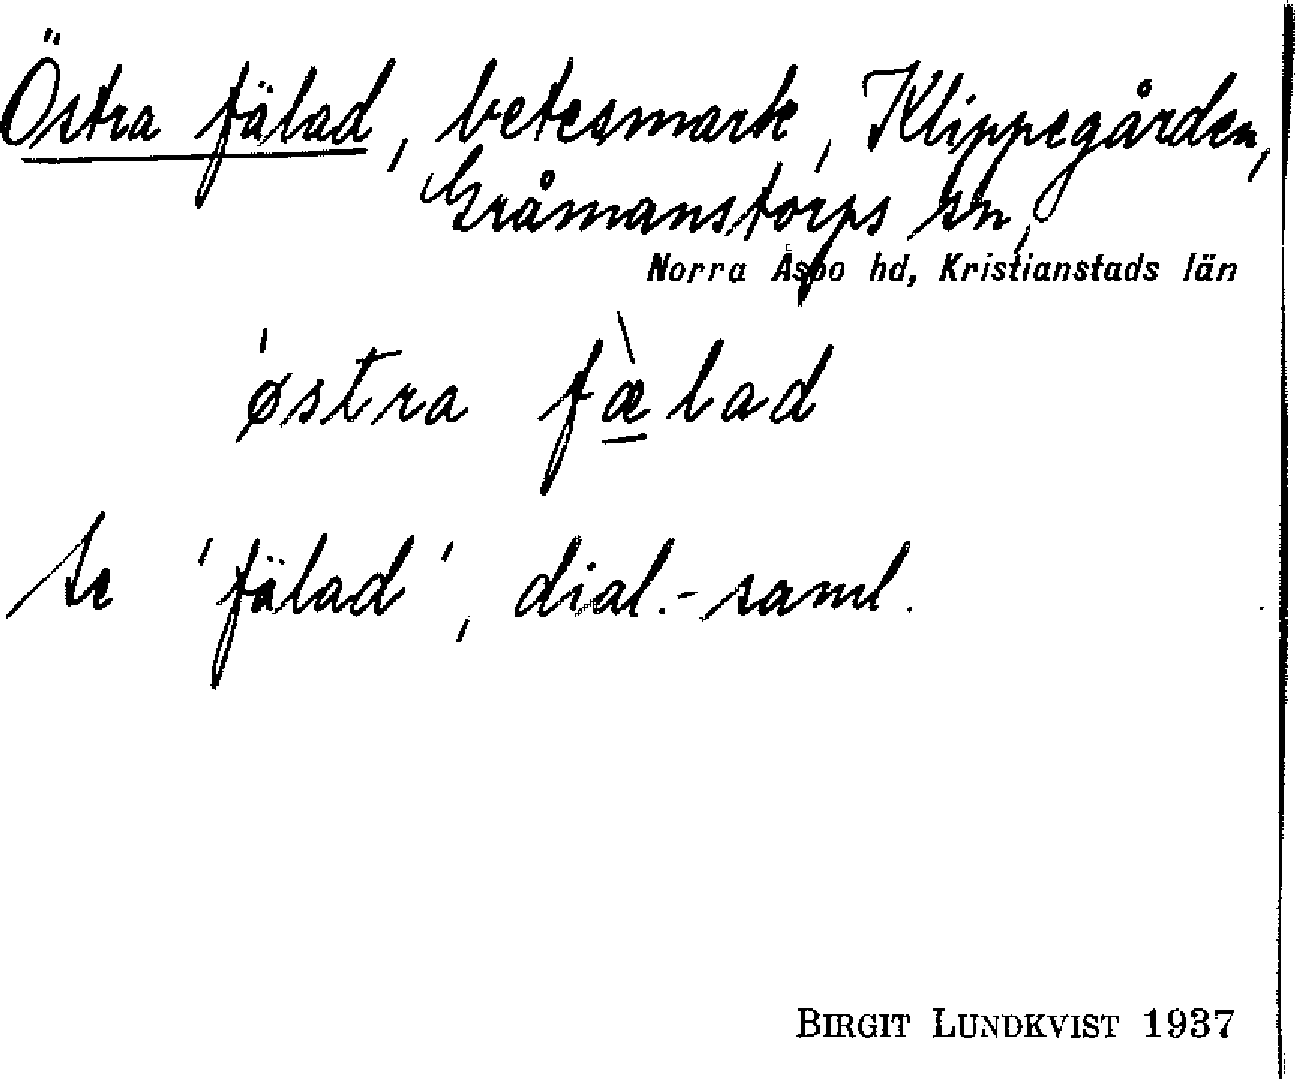 Östra fälad, betesmark, Klippegården,
Gråmanstorps sn,
Norra Åsbo hd, Kristianstads län
ˈøstra fæ̠̀lad
Se 'fälad', dial.-saml.
BIRGIT LUNDKVIST 1937